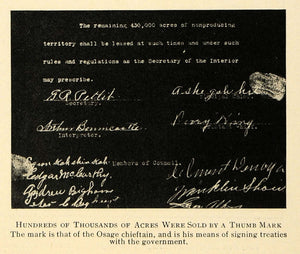 The remaining 430,000 acres of nonproducing
territory shall be leased at such times and under such
rules and regulations as the Secretary of the Interior
may prescribe.
G.R. Pettet
Secretary.
Interpreter.
Perry King
Members of Council.
Edgar McCarthy
Andrew Bighorn
Clement Denoya
Franklin Shaw
HUNDREDS OF THOUSANDS OF ACRES WERE SOLD BY A THUMB MARK
The mark is that of the Osage chieftain, and is his means of signing treaties
with the government.